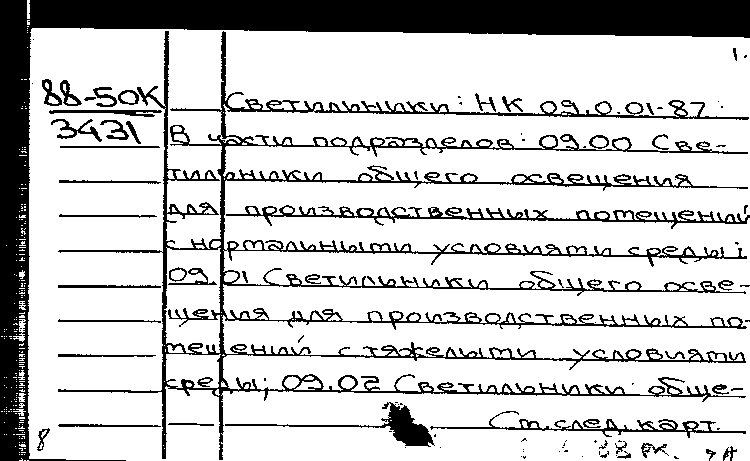 1.
88-50К Светильники: НК 09.0.01-87:
3431 В части подразделов: 09.00 Све-
тильники общего освещения
для производственных помещений
с нормальными условиями среды;
09.01 Светильники общего осве-
щения для производственных по-
мещений с тяжелыми условиями
среды; 09.02 Светильники обще-
См. след. карт.
8